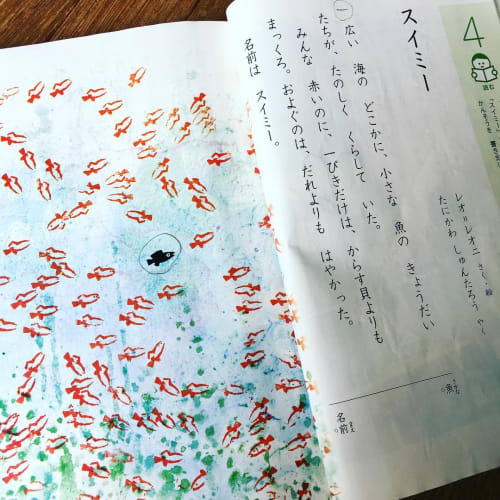 4
読む
スイミー
かんそうを 書こう
スイミー
レオ＝レオニ さく・絵
たにかわ しゅんたろう やく
一
広い 海の どこかに、小さな 魚の きょうだい
たちが、たのしく くらして いた。
みんな 赤いのに、一ぴきだけは、からす貝よりも
まっくろ。およぐのは、だれよりも はやかった。
名前は スイミー。
魚
名前